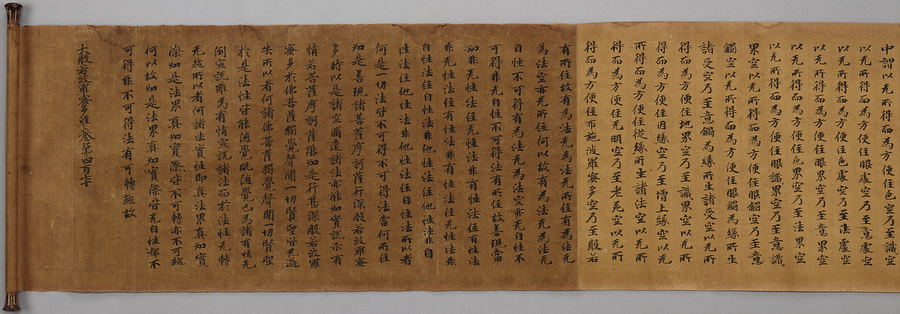 中謂以无所得而為方便住色空乃至識空
以无所得而為方便住眼處空乃至意處空
以无所得而為方便住色處空乃至法處空
以无所得而為方便住眼界空乃至意界空
以无所得而為方便住色界空乃至法界空
以无所得而為方便住眼識界空乃至意識
界空以无所得而為方便住眼觸空乃至意
觸空以无所得而為方便住眼觸為緣所生
諸受空乃至意觸為緣所生諸受空以无所
得而為方便住地界空乃至識界空以无所
得而為方便住因緣空乃至增上緣空以无所
得而為方便住從緣所生諸法空以无所
得而為方便住无明空乃至老死空以无所
得而為方便住布施波羅蜜多空乃至般若
有所住故有為法无為法无所住有為法无
為法空亦无所住何以故有為法无為法无
自性不可得有為法无為法空亦无自性不
可得非无自性不可得法有所住故善現當
知非无性法住无性法非有性法住有性法
非无性法住有性法非有性法住无性法非
自性法住自性法非他性法住他性法非自
性法住他性法非他性法住自性法所以者
何是一切法皆不可得不可得法當何所住
如是善現諸菩薩摩訶薩行深般若波羅蜜
多時以是諸空遣諸法亦能如實說示有
情若菩薩摩訶薩能如是行甚深般若波羅
蜜多於佛菩薩獨覺聲聞一切賢聖皆无過
失所以者何諸佛菩薩獨覺聲聞一切賢聖
於是法性皆能隨覺既隨覺已為諸有情无
倒宣說雖為有情宣說諸法而於法性无轉
无越所以者何諸法實性即真法界真如實
際如是法界真如實際皆不可轉亦不可越
何以故如是法界真如實際皆无自性都不
可得非不可得法有可轉越故
大般若波羅蜜多經卷第四百七十